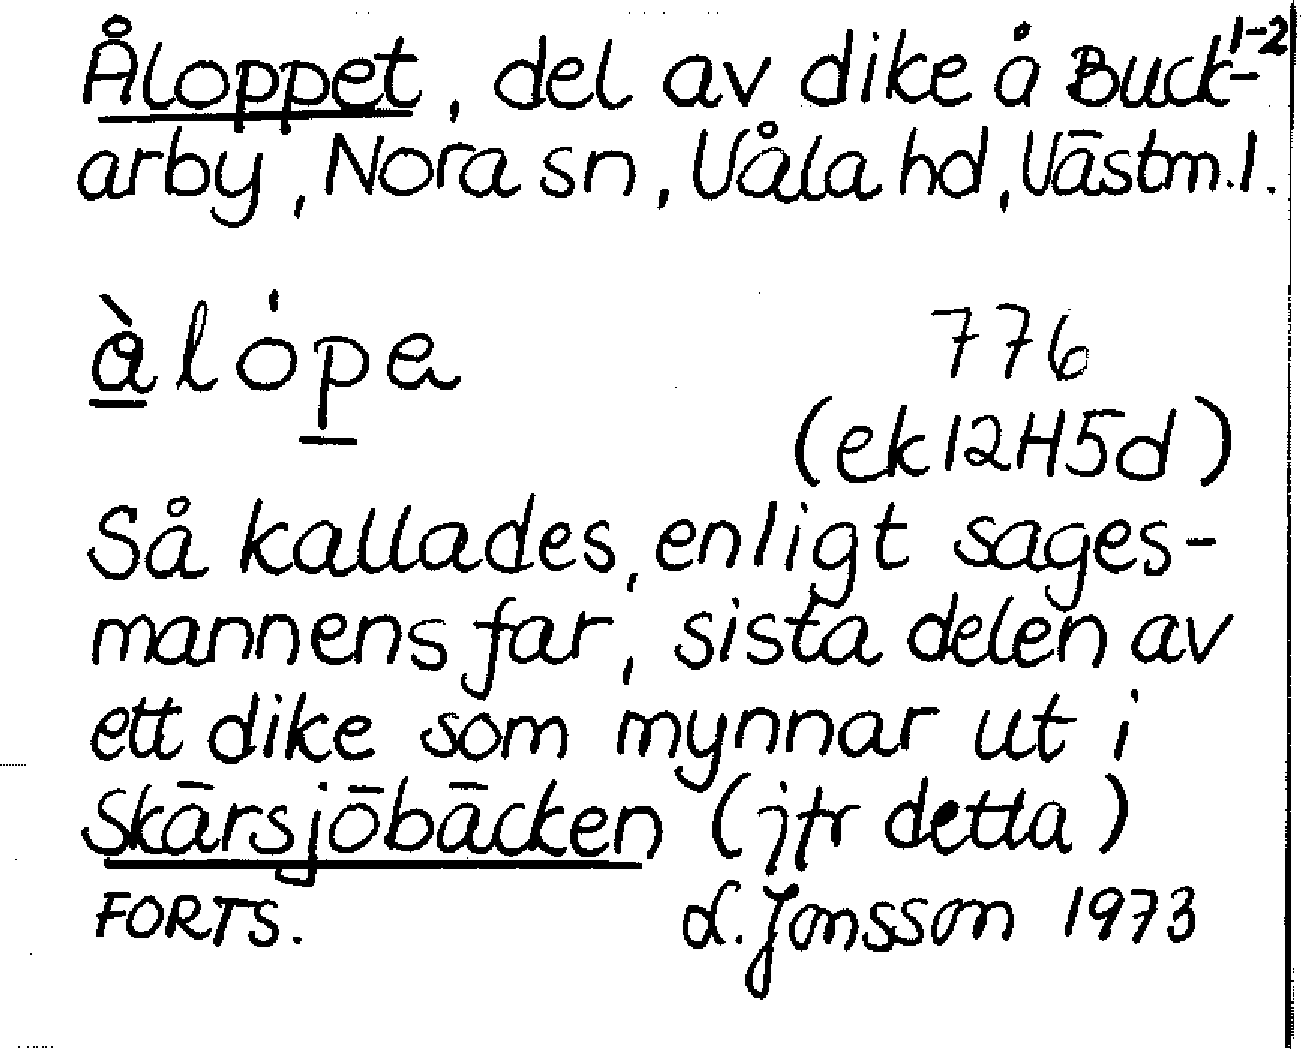 Åloppet, del av dike å Buck-1-2
arby, Nora sn, Våla hd, Västm. l.
àlópe
776
(ek 12H5d)
Så kallades, enligt sages-
mannens far, sista delen av
ett dike som mynnar ut i
Skärsjöbäcken (jfr detta)
FORTS. Jonsson 1973